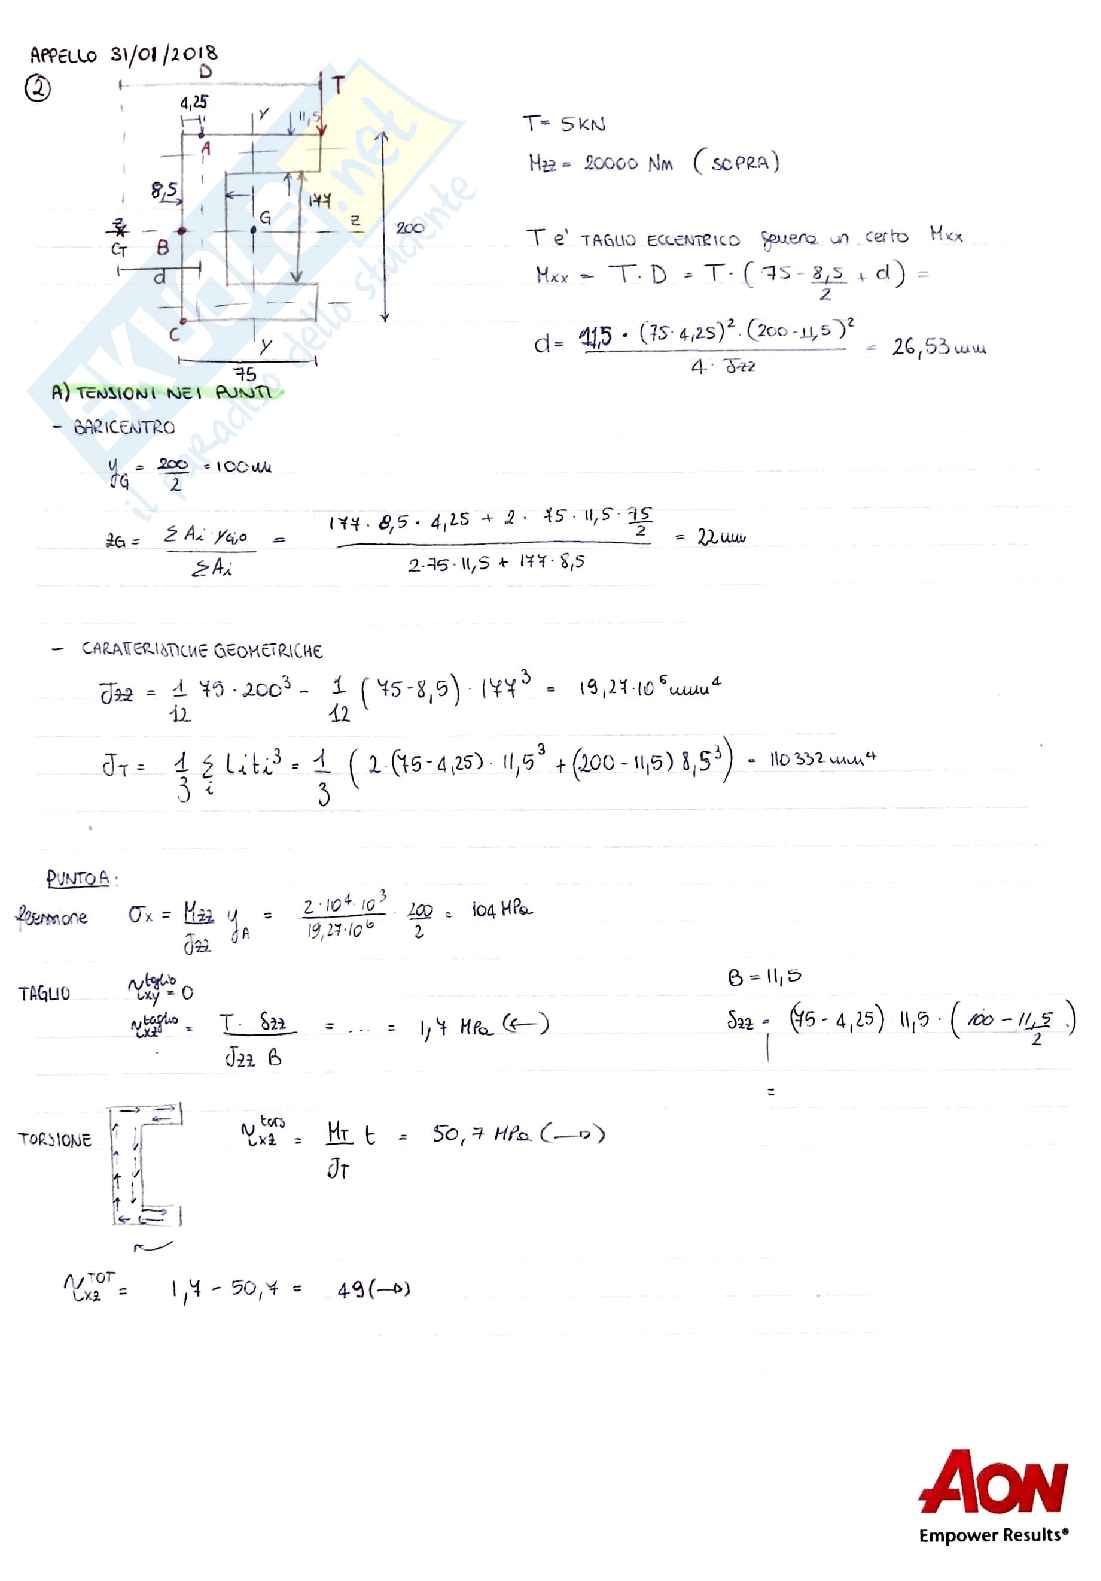 APPELLO 31/01/2018
2
D
T
4,25
Y
11,5
A
8,5
177
G
z
200
z
CT
B
d
C
Y
75
SKUOLA.net
il paradiso dello studente
T = 5KN
Mzz = 20000 Nm (SOPRA)
T e' TAGLIO ECCENTRICO genera un certo Mxx
Mxx = T·D = T·(75 - 8,5/2 + d) =
d = 11,5 · (75·4,25)² · (200-11,5)² / 4·Jzz = 26,53 mm
A) TENSIONI NEI PUNTI
- BARICENTRO
yG = 200/2 = 100 mm
zG = ΣAi yGi0 / ΣAi = 177·8,5·4,25 + 2·75·11,5·75/2 / 2·75·11,5 + 177·8,5 = 22 mm
- CARATTERISTICHE GEOMETRICHE
Jzz = 1/12 75·200³ - 1/12 (75-8,5)·177³ = 19,27·10⁶ mm⁴
JT = 1/3 Σi liti³ = 1/3 (2·(75-4,25)·11,5³ + (200-11,5) 8,5³) = 110332 mm⁴
PUNTO A:
flessione σx = Mzz/Jzz yA = 2·10⁴·10³/19,27·10⁶ 200/2 = 104 MPa
TAGLIO τxy taglio = 0
B = 11,5
τxz taglio = T·Szz / Jzz B = ... = 1,7 MPa (←)
Szz = (75-4,25) 11,5·(100 - 11,5/2)
=
TORSIONE τxz tors = MT/JT t = 50,7 MPa (→)
τxz TOT = 1,7 - 50,7 = 49 (→)
AON
Empower Results®